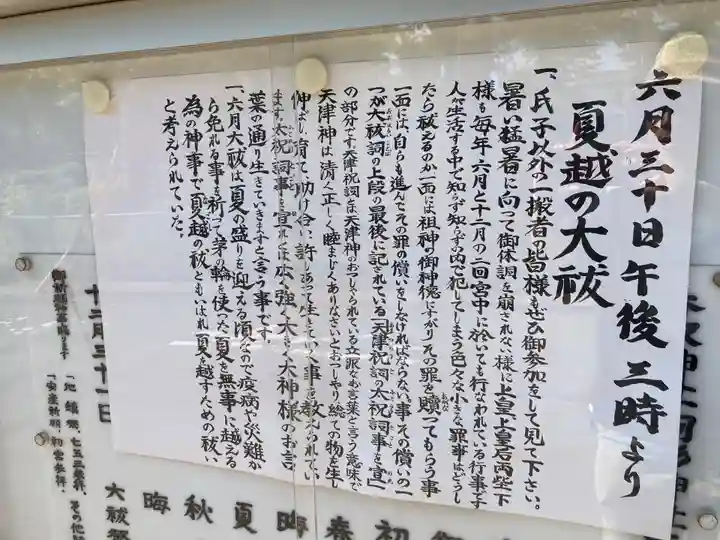 六月三十日午後三時より
夏越の大祓
一、氏子以外の一搬者の皆様もぜひ御参加をして見て下さい。
暑い猛暑に向って御体調を崩されない様に上皇上皇后両陛下
様も毎年六月と十二月の二回宮中に於いても行なわれている行事です
人が生活する中で知らず知らずの内で犯してしまう色々な小さな罪事はどうし
たら祓えるのか一面には祖神の御神徳にすがりその罪を贖ってもらう事
一面には、自らも進んでその罪の償いをしなければならない事その償いの一
つが大祓詞の上段の最後に記されている「天津祝詞の太祝詞事を宣」
の部分です。天津祝詞とは天津神のおっしゃられている立派なお言葉と言う意味で
天津神は清く正しく睦まじくありなさいとおっしゃり総ての物を生し
伸ばし育て助け合い許しあって生きていく事を教えられてい
ます。太祝詞事を宣れとは広く強く大きく大神様のお言
葉の通り生きていきますと言う事です。
一、六月大祓は夏の盛りを迎える頃なので疫病や災難か
ら免れる事を祈って茅の輪を使った夏を無事に越える
為の神事で夏越の祓ともいはれ夏を越すための祓い
と考えられていた。
十二月三十一日
御祈願随時
地鎮祭、七五三祝、その他
安産祈願、初宮参拝、
初
春
晦
夏
秋
晦
大祓祭